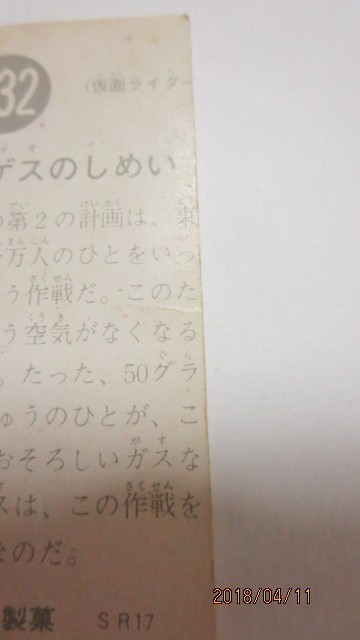 32
（仮面ライダー
ゲスのしめい
第2の計画は、東
万人のひとをいっ
う作戦だ。このた
う空気がなくなる
。たった、50グラ
ゅうのひとが、こ
おそろしいガスな
スは、この作戦を
なのだ。
製菓 SR17
2018/04/11